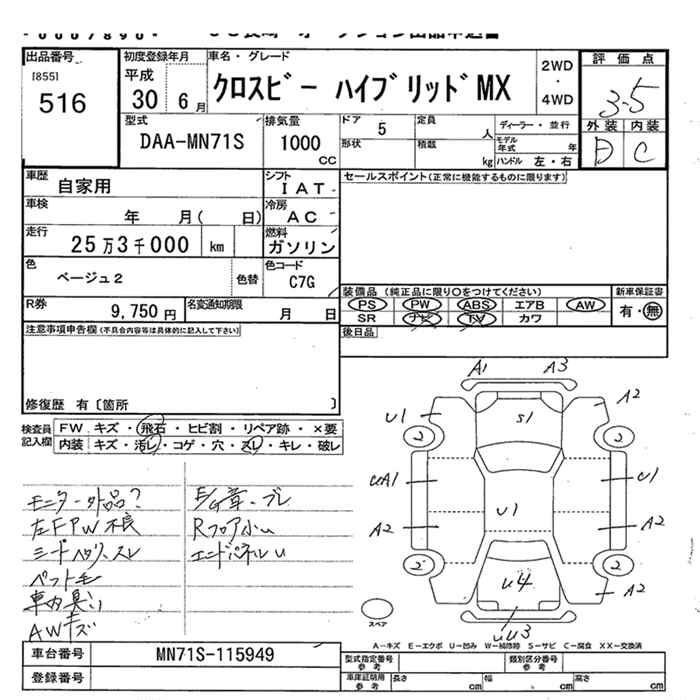 出品番号
[855]
516
初度登録年月
平成
30 6月
車名・グレード
クロスビー ハイブリッドMX
2WD
・
4WD
評価点
3.5
外装 内装
D C
型式
DAA-MN71S
排気量
1000
cc
ドア
5
定員
人
ディーラー・並行
形状
積数
kg
モデル年式
年
ハンドル 左・右
車歴
自家用
シフト
IAT
セールスポイント(正常に機能するものに限ります)
車検
年 月( 日)
冷房
AC
走行
25万3千000 km
燃料
ガソリン
色
ベージュ2
色替
色コード
C7G
装備品 (純正品に限り○をつけてください)
PS PW ABS エアB AW
SR ナビ TV カワ
新車保証書
有・無
R券
9,750円
名変通知期限
月 日
後日品
注意事項申告欄(不具合内容等は具体的に記入して下さい)
修復歴 有〔箇所 〕
検査員
記入欄
FW キズ・飛石・ヒビ割・リペア跡・×要
内装 キズ・汚レ・コゲ・穴・スレ・キレ・破レ
モニター外品?
左FPW不良
シートハリ、スレ
ペット毛
車内臭い
AWキズ
Rフロア小u
エンドパネルu
A1 A3
A2
U1
S1
2 2
A1
U1
U1
A2
A2
2 2
U4
A2
U3
スペア
A-キズ E-エクボ U-凹み W-補修跡 S-サビ C-腐食 XX-交換済
車台番号
MN71S-115949
登録番号
型式指定番号
参考
類別区分番号
参考
車庫証明用
参考
長さ cm
幅 cm
高さ cm